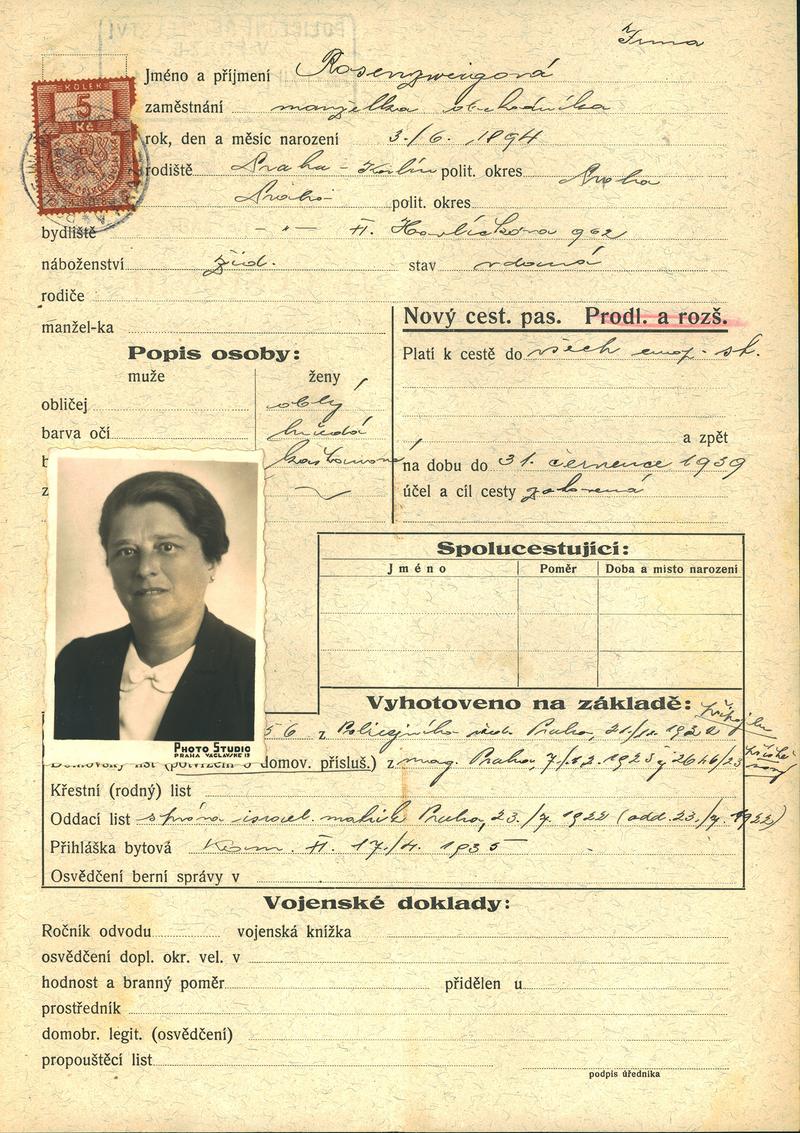 Irma
Jméno a příjmení Rosenzweigová
KOLEK
5
Kč
zaměstnání manželka obchodníka
rok, den a měsíc narození 3./6. 1894
rodiště Praha - Karlín polit. okres Praha
Praha polit. okres
bydliště - " - II. Havlíčkova 962
náboženství žid. stav vdaná
rodiče
manžel-ka
Nový cest. pas. Prodl. a rozš.
Popis osoby:
Platí k cestě do všech evrop. st.
muže ženy
obličej oblý
barva očí hnědá
a zpět
kaštanová
na dobu do 31. července 1939
účel a cíl cesty
Spolucestující:
Jméno Poměr Doba a místo narození
Vyhotoveno na základě:
56 z Policejního Praha, 1922
PHOTO STUDIO
PRAHA VÁCLAVSKÉ 13
Domovský list (potvrzení o domov. přísluš.) z mag. Praha, 7./12. 1923
Křestní (rodný) list
Oddací list správa israel. matrik Praha, 23./7. 1922 (odd. 23./7. 1922)
Přihláška bytová Kom. II. 17./4. 1935
Osvědčení berní správy v
Vojenské doklady:
Ročník odvodu vojenská knížka
osvědčení dopl. okr. vel. v
hodnost a branný poměr přidělen u
prostředník
domobr. legit. (osvědčení)
propouštěcí list
podpis úředníka